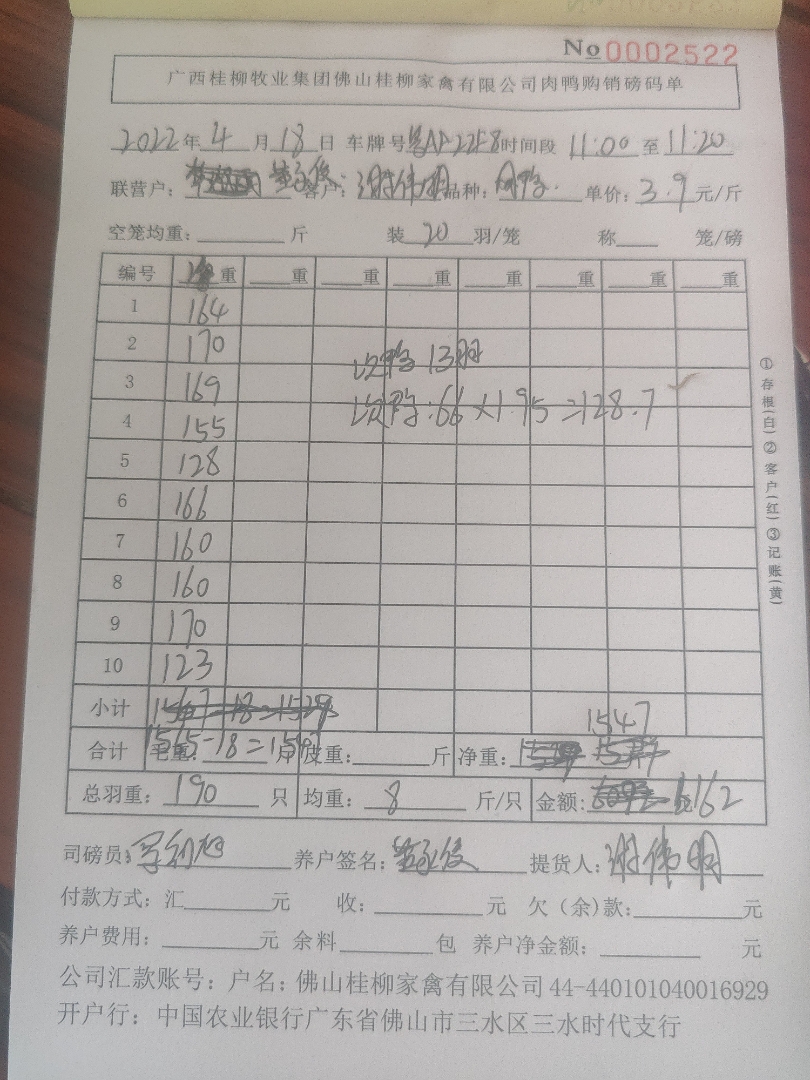 No 0002522
广西桂柳牧业集团佛山桂柳家禽有限公司肉鸭购销磅码单
2022年4月18日 车牌号粤AP22F8时间段 11:00 至 11:20
联营户： 客户：谢伟明 品种：肉鸭. 单价：3.9元/斤
空笼均重： 斤 装 20 羽/笼 称 笼/磅
编号 重 重 重 重 重 重 重 重
1 164
2 170 次鸭 13羽
3 169
4 155 次鸭:66×1.95=128.7
5 128
6 166
7 160
8 160
9 170
10 123
小计 1547
合计 毛重： 1565-18=1547 斤 皮重： 斤 净重：
总羽重：190 只 均重：8 斤/只 金额： 6162
司磅员： 养户签名： 提货人：谢伟明
付款方式：汇 元 收： 元 欠（余）款： 元
养户费用： 元 余料 包 养户净金额： 元
公司汇款账号：户名：佛山桂柳家禽有限公司 44-440101040016929
开户行：中国农业银行广东省佛山市三水区三水时代支行
①存根(白)②客户(红)③记账(黄)